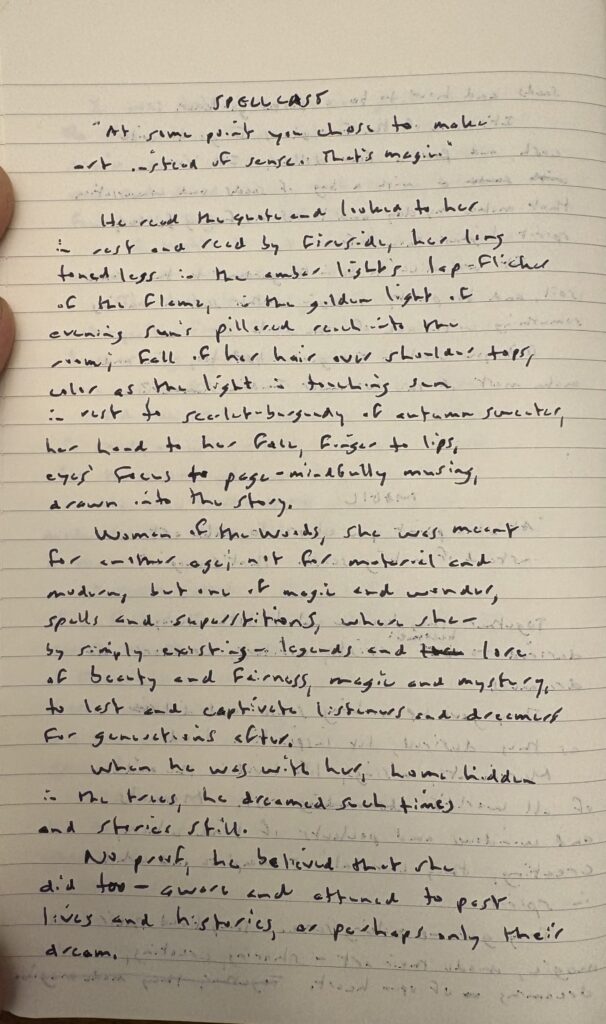 SPELLCAST
"At some point you chose to make
art instead of sense. That's magic."
He read the quote and looked to her
in rest and read by fireside, her long
toned legs in the amber light's lap-flicker
of the flame, in the golden light of
evening sun's pillared reach into the
room; fall of her hair over shoulder tops,
color as the light in touching sun
in rest to scarlet-burgundy of autumn sweater,
her hand to her face, finger to lips,
eyes' focus to page - mindfully musing,
drawn into the story.
Woman of the woods, she was meant
for another age; not for material and
modern, but one of magic and wonder,
spells and superstitions, where she -
by simply existing - legends and lore
of beauty and fairness, magic and mystery,
to last and captivate listeners and dreamers
for generations after.
When he was with her, home hidden
in the trees, he dreamed such times
and stories still.
No proof, he believed that she
did too - aware and attuned to past
lives and histories, or perhaps only their
dream.